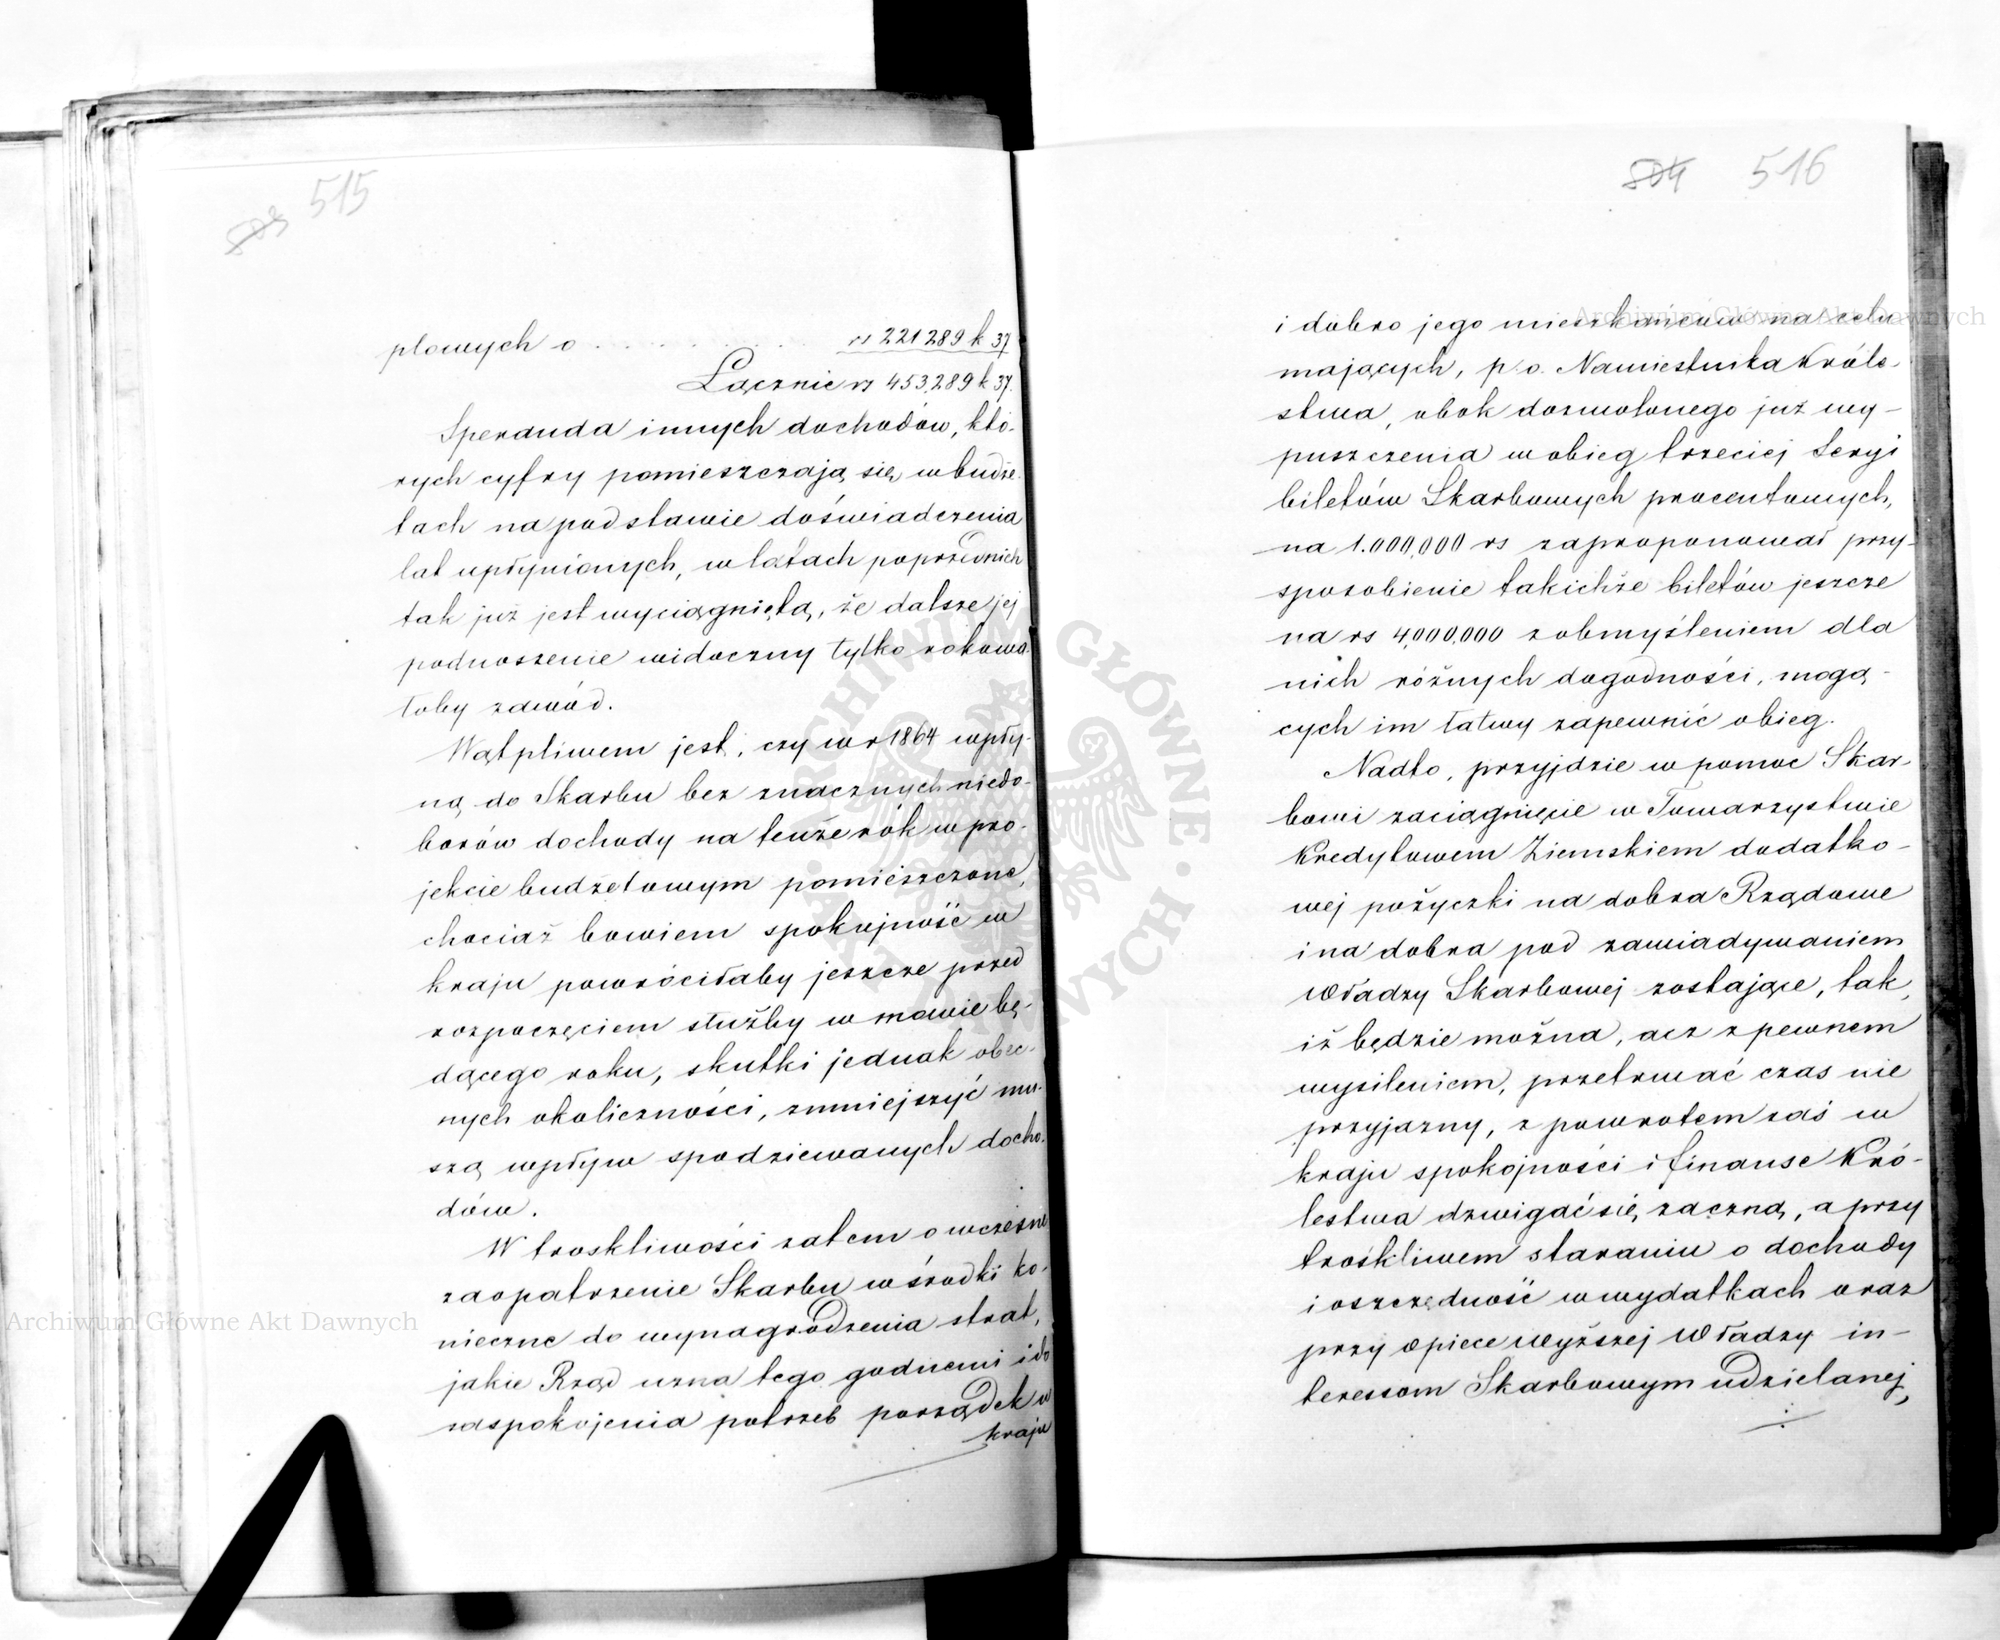 515
plowych o . . . . . . . rs 221289 k 37
Łącznie rs 453289 k 37.
Speranda innych dochodów, któ-
rych cyfry pomieszczają się w budże-
tach na podstawie doświadczenia
lat upłynionych, w latach poprzednich
tak już jest wyciągnięta, że dalsze jej
podnoszenie widoczny tylko rokowa-
łoby zawód.
Wątpliwem jest, czy w r 1864 wpły-
ną do Skarbu bez znacznych niedo-
borów dochody na tenże rok w pro-
jekcie budżetowym pomieszczone,
chociaż bowiem spokojność w
kraju powróciłaby jeszcze przed
rozpoczęciem służby w mowie bę-
dącego roku, skutki jednak obec-
nych okoliczności, zmniejszyć mu-
szą wpływ spodziewanych docho-
dów.
W troskliwości zatem o wczesne
zaopatrzenie Skarbu w środki ko-
nieczne do wynagrodzenia strat,
jakie Rząd uzna tego godnemi i do
zaspokojenia potrzeb porządek w
kraju
Archiwum Główne Akt Dawnych
504 516
i dobro jego mieszkańców na celu
mających, p.o. Namiestnika Króle-
stwa, obok dozwolonego już wy-
puszczenia w obieg trzeciej Seryi
biletów Skarbowych procentowych,
na 1.000,000 rs zaproponował przy-
sposobienie takichże biletów jeszcze
na rs 4,000,000 z obmyśleniem dla
nich różnych dogodności, mogą-
cych im łatwy zapewnić obieg.
Nadto, przyjdzie w pomoc Skar-
bowi zaciągnięcie w Towarzystwie
Kredytowem Ziemskiem dodatko-
wej pożyczki na dobra Rządowe
i na dobra pod zawiadywaniem
Władzy Skarbowej zostające, tak,
iż będzie można, acz z pewnem
wysileniem, przetrwać czas nie
przyjazny, z powrotem zaś w
kraju spokojności i finanse Kró-
lestwa dzwigać się zaczną, a przy
troskliwem staraniu o dochody
i oszczędność w wydatkach oraz
przy opiece Wyższej Władzy in-
teressom Skarbowym udzielanej,
Archiwum Główne Akt Dawnych
ARCHIWUM GŁÓWNE AKT DAWNYCH